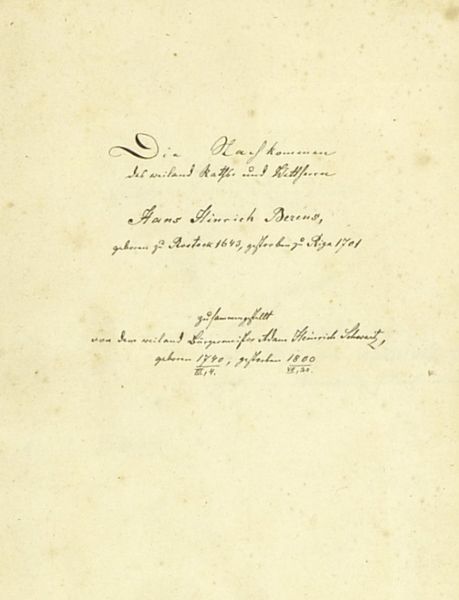 Die Nachkommen
des weiland Raths- und Wettherrn
Hans Hinrich Berens,
geboren zu Rostock 1643, gestorben zu Riga 1701
zusammengestellt
von dem weiland Bürgermeister Adam Heinrich Schwartz,
geboren 1740, gestorben 1800
III, 4.